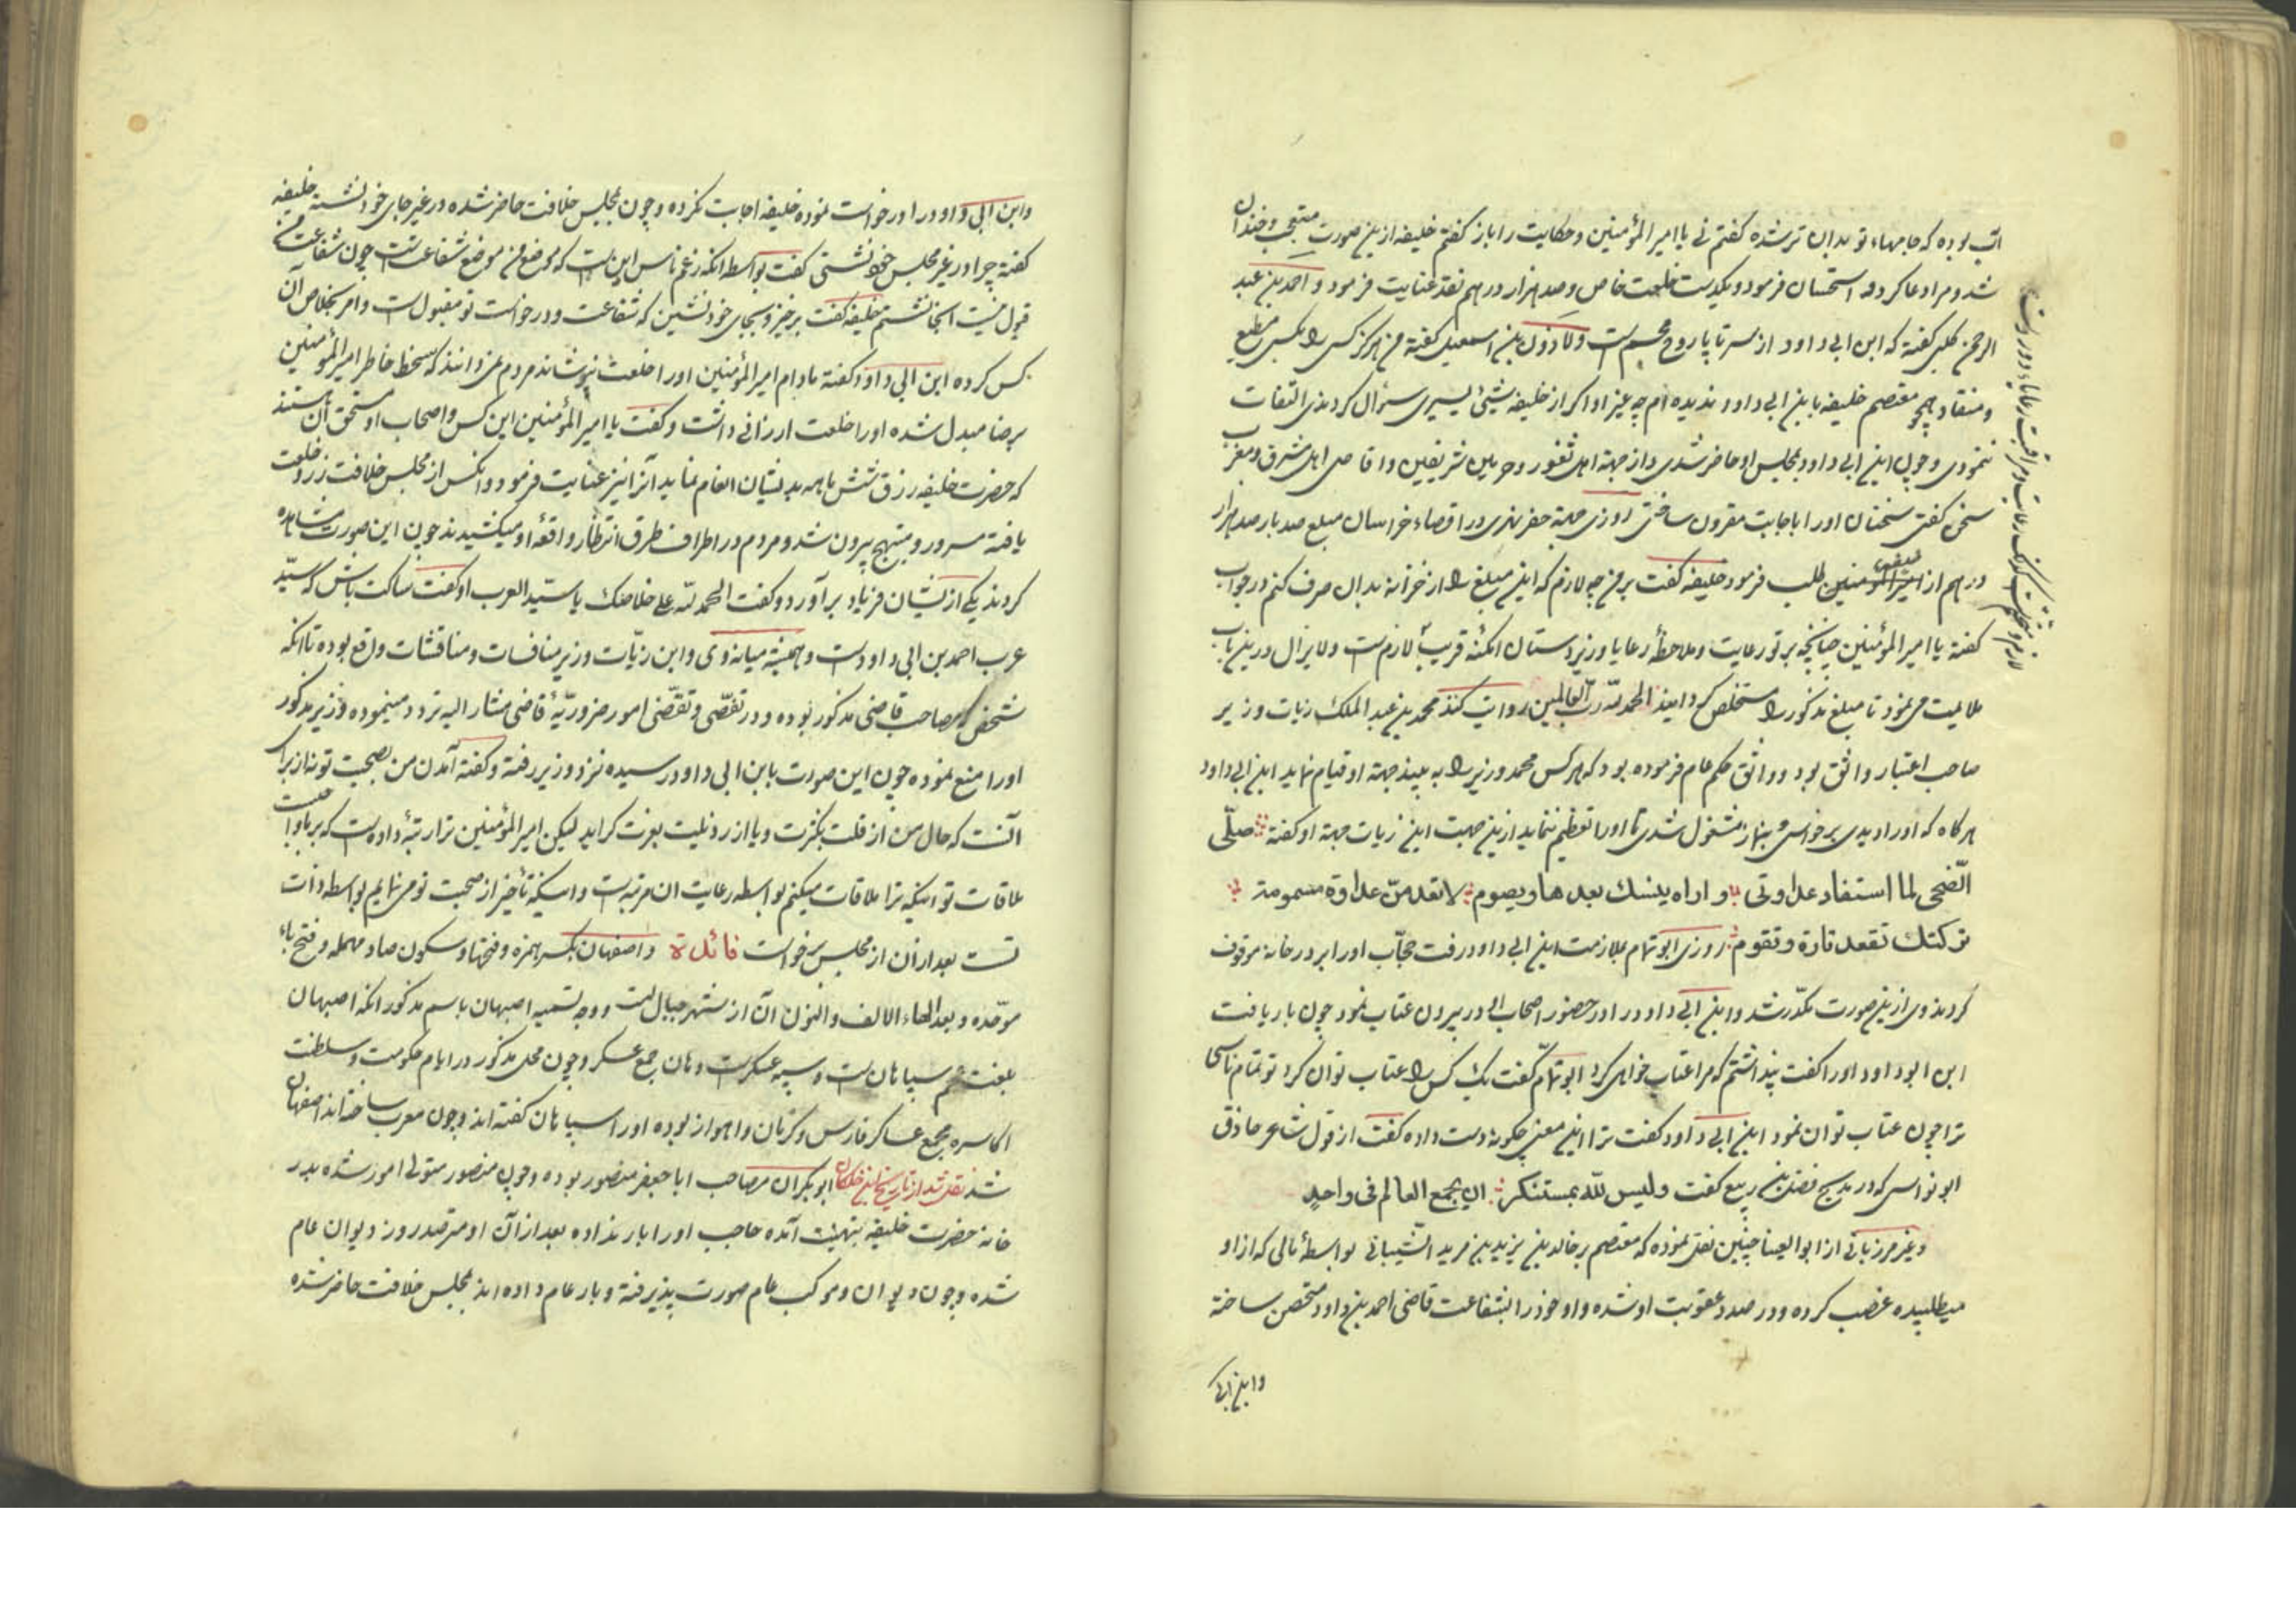 اتب بوده که جامهاء تو بدان تر شده گفتم نی یا امیر المؤمنین و حکایت را باز گفتم خلیفه ازین صورت متعجب و خندان
شد و مرا دعا کرد و استحسان فرمود و یکدست خلعت خاص و صد هزار درهم نقد عنایت فرمود و احمد بن عبد
الرحمن کلبی گفته که ابن ابی داود از سر تا پا روح مجسم است و لاذون بن اسمعیل گفته من هرگز کسی را بکسی مطیع
و منقاد همچو معتصم خلیفه بابن ابی داود ندیده ام چه غیر او اگر از خلیفه شیئ یسیری سؤال کردندی التفات
ننمودی و چون ابن ابی داود بمجلس او حاضر شدی و از جهة اهل ثغور و حرمین شریفین و اقاصی اهل مشرق و مغرب
سخن گفتی سخنان او را باجابت مقرون ساختی روزی جهة حفر نهری در اقصاء خراسان مبلغ صد بار صد هزار
درهم از امیر المؤمنین طلب فرمود خلیفه گفت بر من چه لازم که این مبلغ را از خزانه بدان صرف کنم در جواب
گفته یا امیر المؤمنین چنانچه بر تو رعایت و ملاحظۀ رعایا و زیردستان امکنۀ قریب لازم است و لا یزال درین باب
ملایمت می نمود تا مبلغ مذکور را مستخلص گردانید الحمد لله رب العالمین روایت کنند محمد بن عبد الملک زیات وزیر
صاحب اعتبار واثق بود و واثق حکم عام فرموده بود که هر کس محمد وزیر را به بیند جهة او قیام نماید ابن ابی داود
هر گاه که او را دیدی برخواستی و بنماز مشغول شدی تا او را تعظیم ننماید ازین جهت ابن زیات جهة او گفته صلّی
الضّحی لما استفاد عداوتی و اراه ینسک بعدها و یصوم لا تعدمنّ عداوة مسمومة
ترکتک تقعد تارة و تقوم روزی ابو تمام بملازمت ابن ابی داود رفت حجّاب او را بر در خانه موقوف
کردند وی ازین صورت مکدّر شد و ابن ابی داود را در حضور اصحاب ابی در بیرون عتاب نمود چون بار یافت
ابن ابو داود او را گفت پنداشتم که مرا عتاب خواهی کرد ابو تمّام گفت یک کس را عتاب توان کرد تو تمام ناسی
ترا چون عتاب توان نمود ابن ابی داود گفت ترا این معنی چگونه دست داده گفت از قول شاعر حاذق
ابو نواس که در مدح فضل بن ربیع گفت و لیس لله بمستنکر ان یجمع العالم فی واحد
و غیر مرزبانی از ابو العینا چنین نقل نموده که معتصم بر خالد بن یزید بن مزید الشیبانی بواسطۀ مالی که ازاو
میطلبیده غضب کرده و در صدد عقوبت او شده و او خود را بشفاعت قاضی احمد بن داود متحصن ساخته
و ابن ابی
و ابن ابی داود را درخواست نموده خلیفه اجابت نکرده و چون بمجلس خلافت حاضر شده در غیر جای خود نشسته خلیفه
گفته چرا در غیر مجلس خود نشستی گفت بواسطه انکه زعم ناس این است که موضع من موضع شفاعتست چون شفاعت من
قبول نیست اینجا نشستم خلیفه گفت برخیز و بجای خود نشین که شفاعت و درخواست تو مقبول است و امر بخلاص آن
کس کرده ابن ابی داود گفته مادام امیر المؤمنین او را خلعت نپوشاند مردم نمی دانند که سخط خاطر امیر المؤمنین
برضا مبدل شده او را خلعت ارزانی داشت و گفت یا امیر المؤمنین این کس و اصحاب او مستحق آن هستند
که حضرت خلیفه رزق شش ماهه بدیشان انعام نماید آنرا نیز عنایت فرمود و انکس از مجلس خلافت زر و خلعت
یافته مسرور و مبتهج بیرون شد و مردم در اطراف طرق انتظار واقعۀ او میکشیدند چون این صورت مشاهده
کردند یکی از ایشان فریاد برآورد و گفت الحمد لله علی خلاصک یا سیّد العرب او گفت ساکت باش که سیّد
عرب احمد بن ابی داود است و همیشه میانه وی و ابن زیّات وزیر منافسات و مناقشات واقع بوده تا انکه
شخصی که مصاحب قاضی مذکور بوده و در تقصّی و تقضّی امور ضروریّۀ قاضی مشار الیه تردد مینموده وزیر مذکور
او را منع نموده چون این صورت بابن ابی داود رسیده نزد وزیر رفته و گفته آمدن من بصحبت تو نه از برای
آنست که حال من از قلت بکثرت و یا از رذیلت بعزت گراید لیکن امیر المؤمنین ترا رتبۀ داده است که بر ما واجب
ملاقات تو اینکه ترا ملاقات میکنم بواسطه رعایت ان مرتبه است و اینکه تأخیر از صحبت تو می نمایم بواسطه ذات
تست بعد ازان از مجلس برخواست فائدة و اصفهان بکسر همزه و فتحها و سکون صاد مهمله و فتح باء
موحّده و بعد الهاء الالف و النون آن از شهر جبال است و وجه تسمیه اصبهان باسم مذکور انکه اصبهان
بلغت عجم سپاهان است و سپه عسکرست و هان جمع عسکر و چون محل مذکور در ایام حکومت و سلطنت
اکاسره مجمع عساکر فارس و کرمان و اهواز بوده او را سپاهان گفته اند و چون معرب ساخته اند اصفهان
شد نقل شد از تاریخ ابن خلکان ابو بکران مصاحب ابا جعفر منصور بوده و چون منصور متولی امور شده بدر
خانه حضرت خلیفه بتهنیت آمده حاجب او را بار نداده بعد از آن او مترقصد روز دیوان عام
شده و چون دیوان و موکب عام صورت پذیرفته و بار عام داده اند بمجلس خلافت حاضر شده